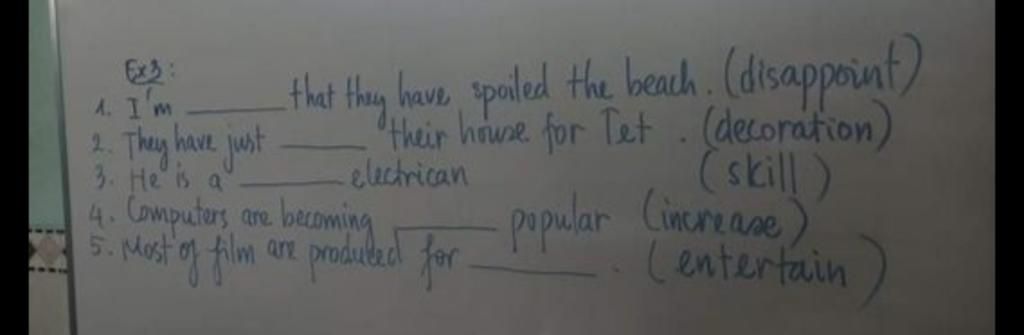 Ex3:
1. I'm ______ that they have spoiled the beach. (disappoint)
2. They have just ______ their house for Tet. (decoration)
3. He is a ______ electrican (skill)
4. Computers are becoming ______ popular (increase)
5. Most of film are produced for ______. (entertain)